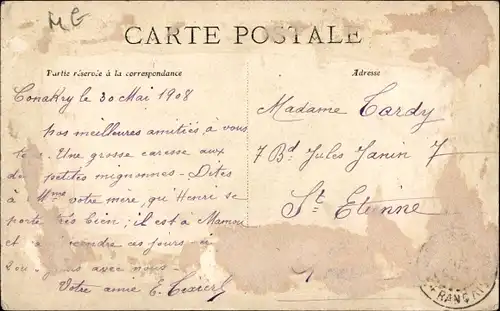 MG
CARTE POSTALE
Partie réservée à la correspondance
Adresse
Conakry le 30 Mai 1908
Nos meilleures amitiés à vous
Une grosse caresse aux
petites mignonnes - Dites
à Mme votre mère, qu'Henri se
porte très bien; il est à Mamou
et ces jours-ci
avec nous -
Votre amie E.
Madame Tardy
7 Bd Jules Janin 7
St Etienne
FRANÇAI